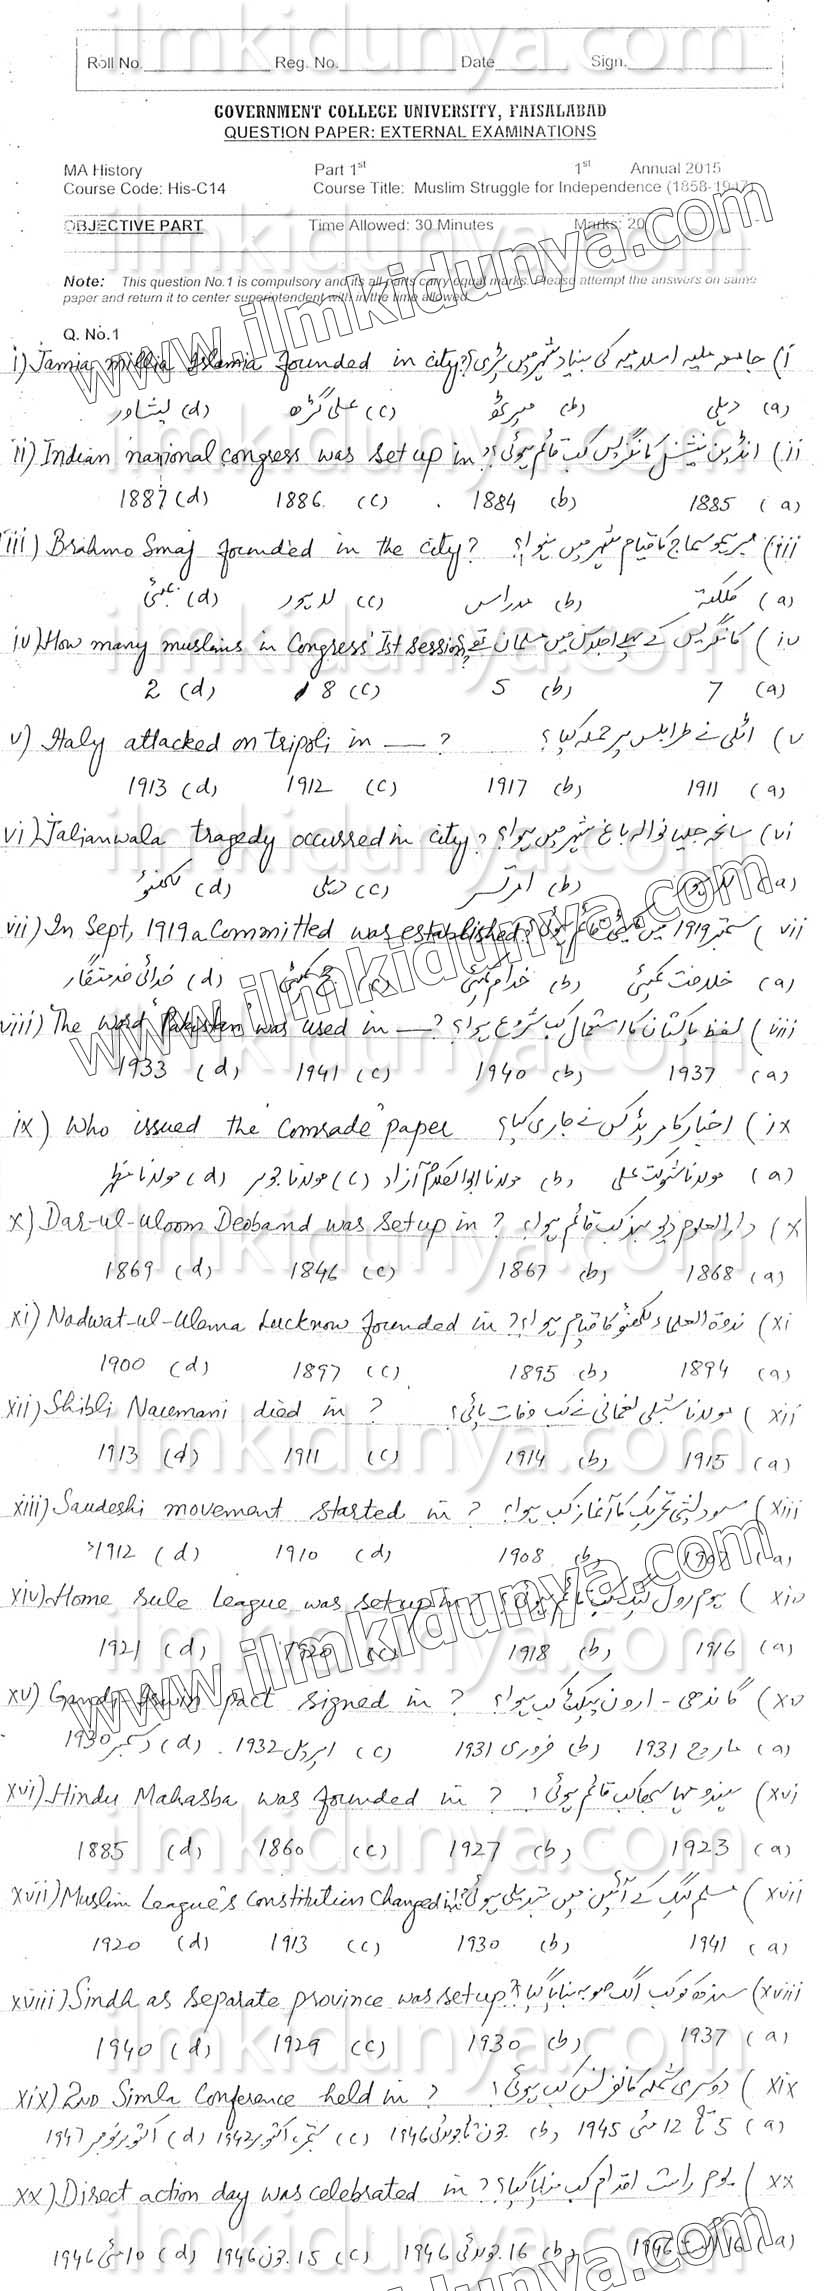 Roll No. Reg. No. Date Sign.
GOVERNMENT COLLEGE UNIVERSITY, FAISALABAD
QUESTION PAPER: EXTERNAL EXAMINATIONS
MA History Part 1st 1st Annual 2015
Course Code: His-C14 Course Title: Muslim Struggle for Independence (1858-1947)
OBJECTIVE PART Time Allowed: 30 Minutes Marks: 20
Note: This question No.1 is compulsory and its all parts carry equal marks. Please attempt the answers on same
paper and return it to center superintendent with in the time allowed.
Q. No.1
i) Jamia millia Islamia founded in city? جامعہ ملیہ اسلامیہ کی بنیاد شہر میں پڑی؟ (i
(a) دہلی (b) میرٹھ (c) علی گڑھ (d) پشاور
ii) Indian national congress was set up in? انڈین نیشنل کانگریس کب قائم ہوئی؟ (ii
(a) 1885 (b) 1884 (c) 1886 (d) 1887
iii) Brahmo Smaj founded in the city? برہمو سماج کا قیام شہر میں ہوا؟ (iii
(a) کلکتہ (b) مدراس (c) لاہور (d) بمبئی
iv) How many muslims in Congress' Ist session? کانگریس کے پہلے اجلاس میں مسلمان تھے (iv
(a) 7 (b) 5 (c) 8 (d) 2
v) Italy attacked on tripoli in ___? اٹلی نے طرابلس پر حملہ کیا؟ (v
(a) 1911 (b) 1917 (c) 1912 (d) 1913
vi) Jalianwala tragedy occurred in city? سانحہ جلیانوالہ باغ شہر میں ہوا؟ (vi
(a) (b) امرتسر (c) دہلی (d) لکھنؤ
vii) In Sept, 1919 a Committed was established? ستمبر 1919 میں کمیٹی قائم ہوئی؟ (vii
(a) خلافت کمیٹی (b) خدام کمیٹی (c) حج کمیٹی (d) خدائی خدمتگار
viii) The word Pakistan was used in ___? لفظ پاکستان کا استعمال کب شروع ہوا؟ (viii
(a) 1937 (b) 1940 (c) 1941 (d) 1933
ix) Who issued the "Comrade" paper اخبار کامریڈ کس نے جاری کیا؟ (ix
(a) مولانا شوکت علی (b) مولانا ابوالکلام آزاد (c) مولانا جوہر (d) مولانا
x) Dar-ul-uloom Deoband was set up in? دارالعلوم دیوبند کب قائم ہوا؟ (x
(a) 1868 (b) 1867 (c) 1846 (d) 1869
xi) Nadwat-ul-Ulama Lucknow founded in? ندوۃ العلماء لکھنؤ کا قیام ہوا؟ (xi
(a) 1894 (b) 1895 (c) 1897 (d) 1900
xii) Shibli Naumani died in? مولانا شبلی نعمانی نے کب وفات پائی؟ (xii
(a) 1915 (b) 1914 (c) 1911 (d) 1913
xiii) Saudeshi movement started in? سودیشی تحریک کا آغاز کب ہوا؟ (xiii
(a) (b) 1908 (d) 1910 (d) 1912
xiv) Home rule League was set up in ہوم رول لیگ کب قائم ہوئی؟ (xiv
(a) 1916 (b) 1918 (c) 1920 (d) 1921
xv) Gandi Irwin pact signed in? گاندھی - ارون پیکٹ کب ہوا؟ (xv
(a) مارچ 1931 (b) فروری 1931 (c) اپریل 1932 (d) دسمبر 1930
xvi) Hindu Mahasba was founded in? ہندو مہا سبھا کب قائم ہوئی؟ (xvi
(a) 1923 (b) 1927 (c) 1860 (d) 1885
xvii) Muslim League's Constitution changed in? مسلم لیگ کے آئین میں تبدیلی ہوئی؟ (xvii
(a) 1941 (b) 1930 (c) 1913 (d) 1920
xviii) Sindh as separate province was set up? سندھ کو کب الگ صوبہ بنایا گیا؟ (xviii
(a) 1937 (b) 1930 (c) 1929 (d) 1940
xix) 2ND Simla Conference held in? دوسری شملہ کانفرنس کب ہوئی؟ (xix
(a) 5 تا 12 مئی 1945 (b) جون تا جولائی 1946 (c) ستمبر، اکتوبر 1942 (d) اکتوبر نومبر 1947
xx) Direct action day was celebrated in? یوم راست اقدام کب منایا گیا؟ (xx
(a) 16 اگست 1946 (b) 16 جولائی 1946 (c) 15 جون 1946 (d) 10 مئی 1946
www.ilmkidunya.com